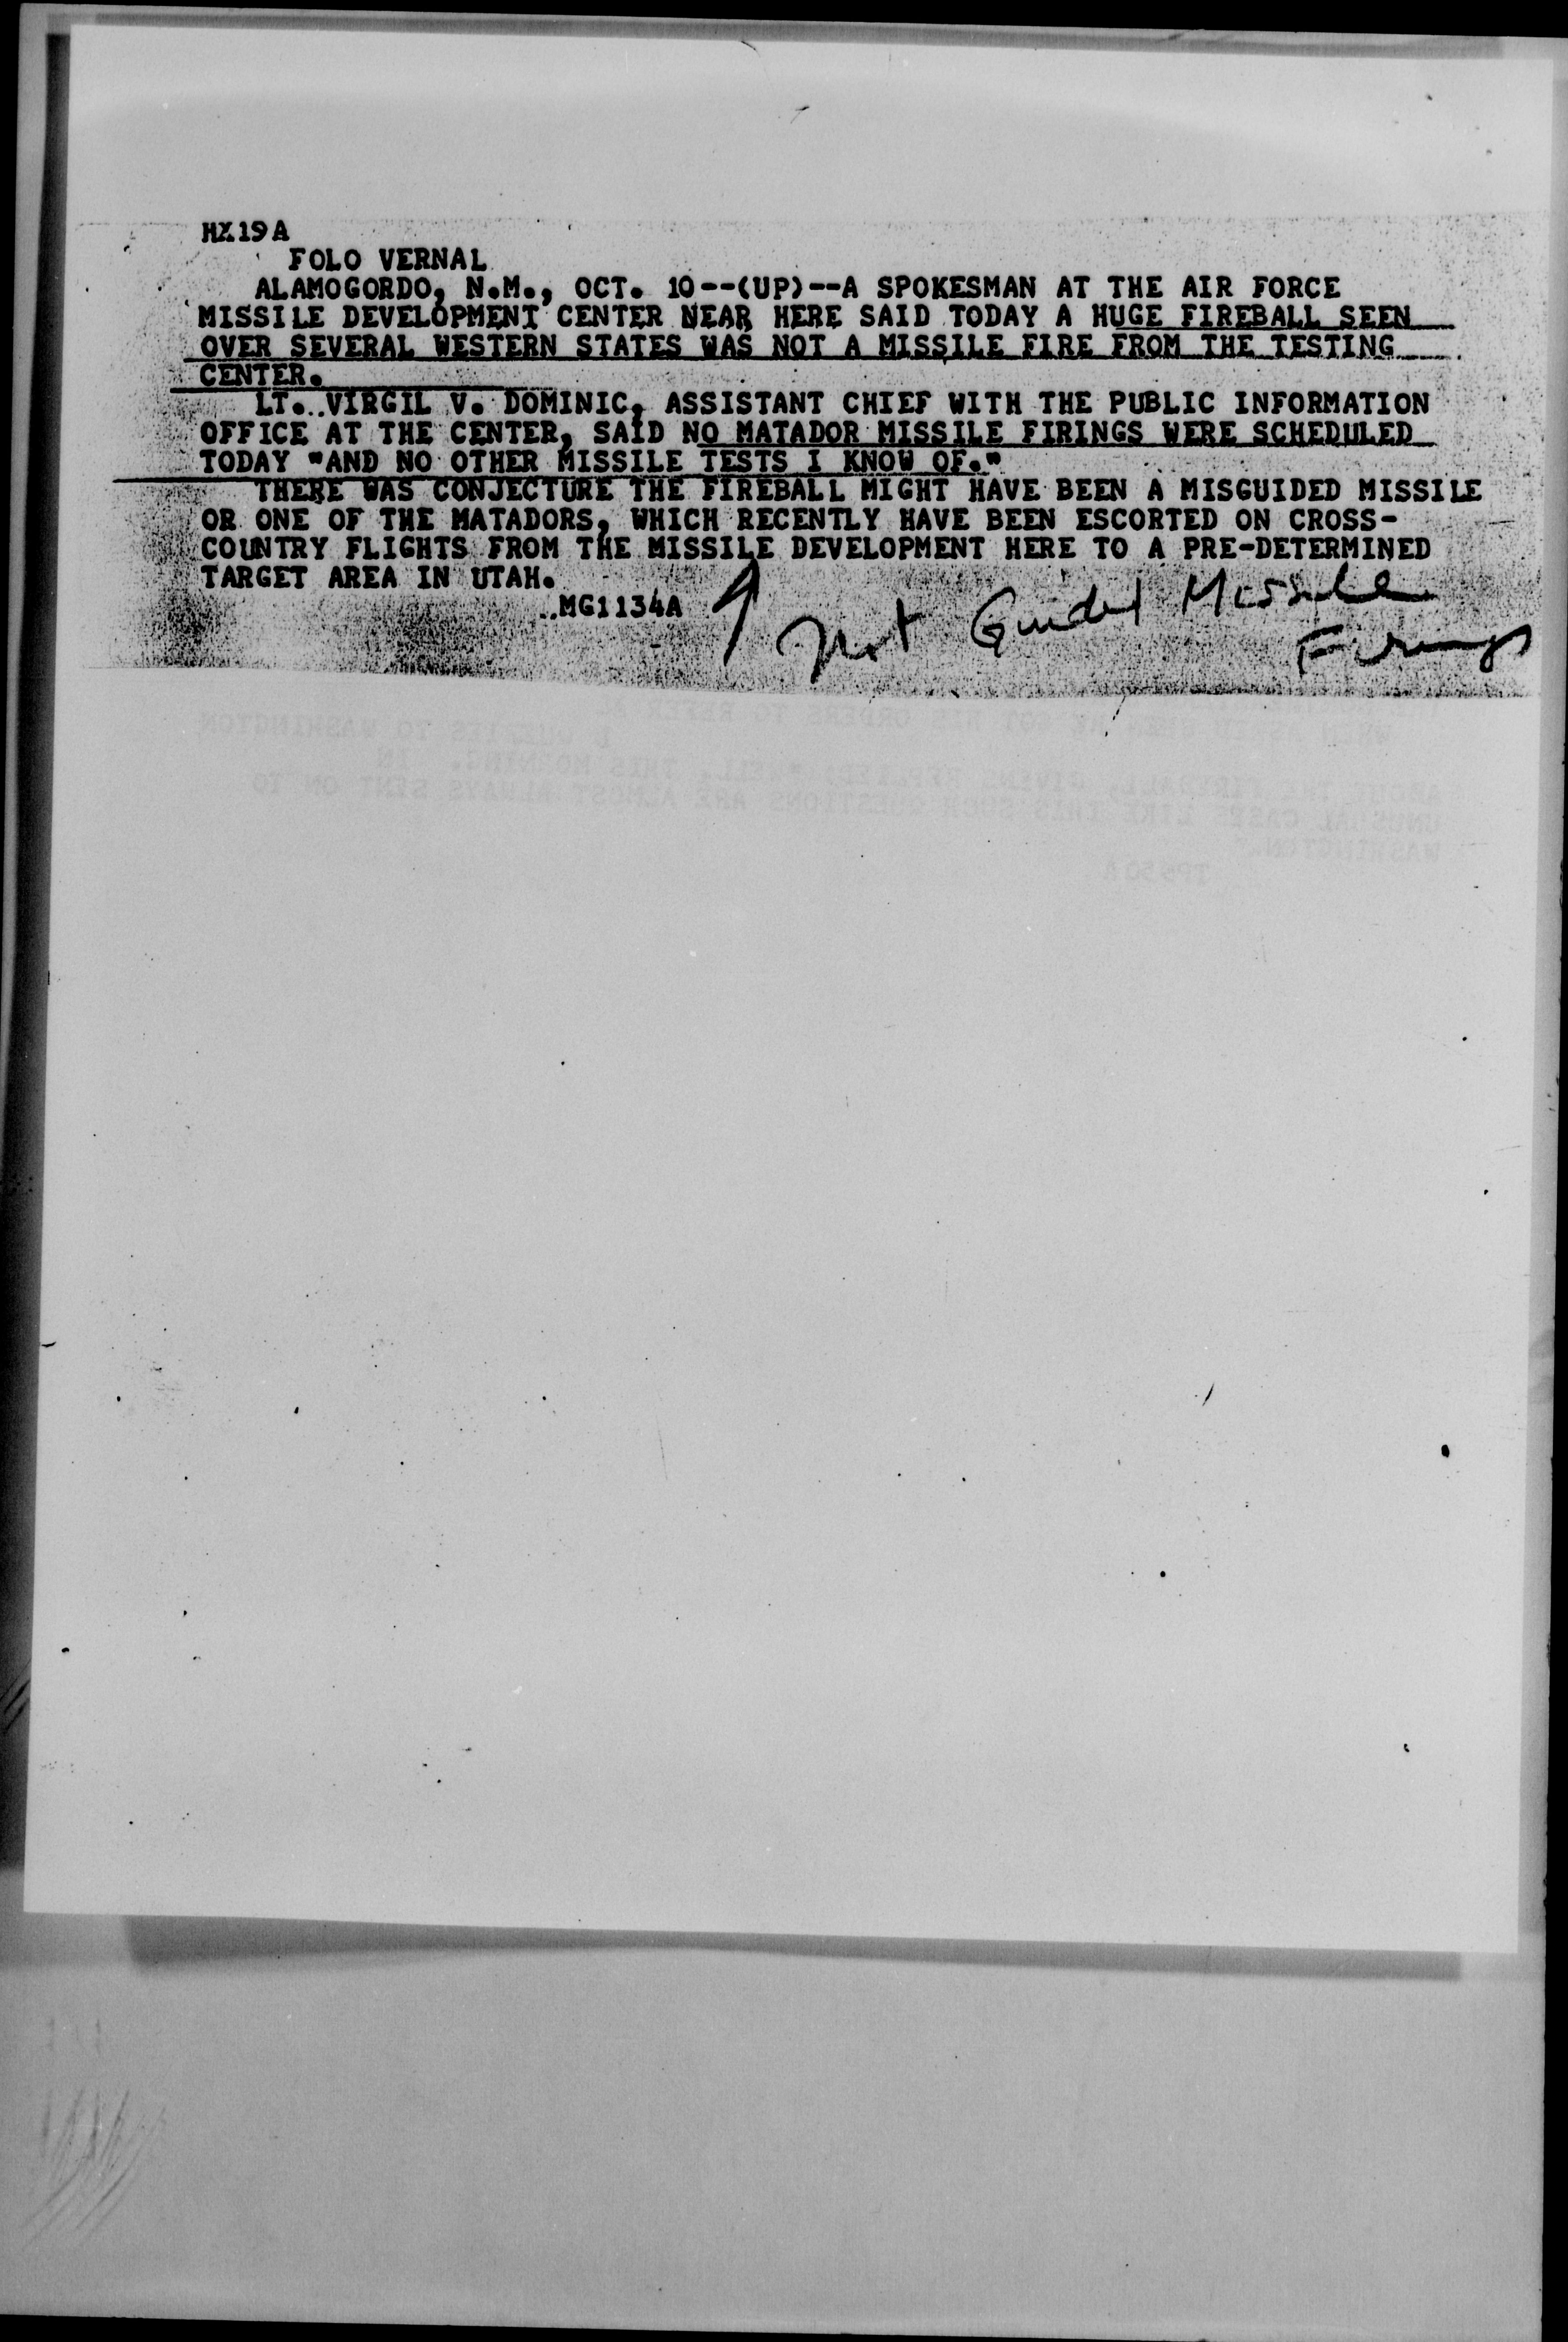 HX19A
FOLO VERNAL
ALAMOGORDO, N.M., OCT. 10--(UP)--A SPOKESMAN AT THE AIR FORCE
MISSILE DEVELOPMENT CENTER NEAR HERE SAID TODAY A HUGE FIREBALL SEEN
OVER SEVERAL WESTERN STATES WAS NOT A MISSILE FIRE FROM THE TESTING
CENTER.
LT. VIRGIL V. DOMINIC, ASSISTANT CHIEF WITH THE PUBLIC INFORMATION
OFFICE AT THE CENTER, SAID NO MATADOR MISSILE FIRINGS WERE SCHEDULED
TODAY "AND NO OTHER MISSILE TESTS I KNOW OF."
THERE WAS CONJECTURE THE FIREBALL MIGHT HAVE BEEN A MISGUIDED MISSILE
OR ONE OF THE MATADORS, WHICH RECENTLY HAVE BEEN ESCORTED ON CROSS-
COUNTRY FLIGHTS FROM THE MISSILE DEVELOPMENT HERE TO A PRE-DETERMINED
TARGET AREA IN UTAH.
MG1134A
Not Guided Missile
Firings